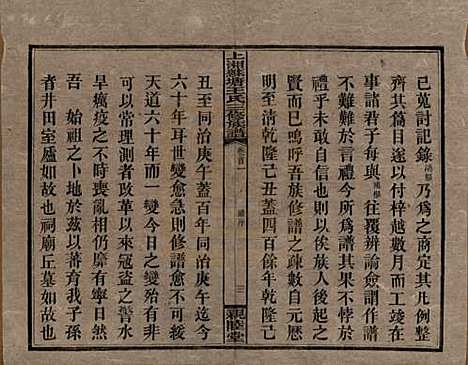 已蒐討記錄涵懋乃為之商定其凡例整
齊其篇目遂以付梓越數月而工竣在
事諸君子每與涵懋往覆辨論僉謂作譜
不難難於言禮今所為譜其不悖於
禮而可以自信也則以俟族人後起之
賢而已矣嗚呼吾族修譜之疎數自元歷
明至清乾隆己丑蓋四百餘年乾隆己
上湘蘇塘王氏三修族譜
卷首一
譜序
三
親睦堂
丑至同治庚午蓋百年同治庚午至今
六十年耳世變愈急則修譜愈不可緩
天道六十年而一變今日之變尤非
常理可測者改革以來寇盜之警水
旱癘疫之不時喪亂相仍靡有寧日然
吾始祖之卜地於茲以蕃育我子姓
者井田室廬如故也祠廟丘墓如故也